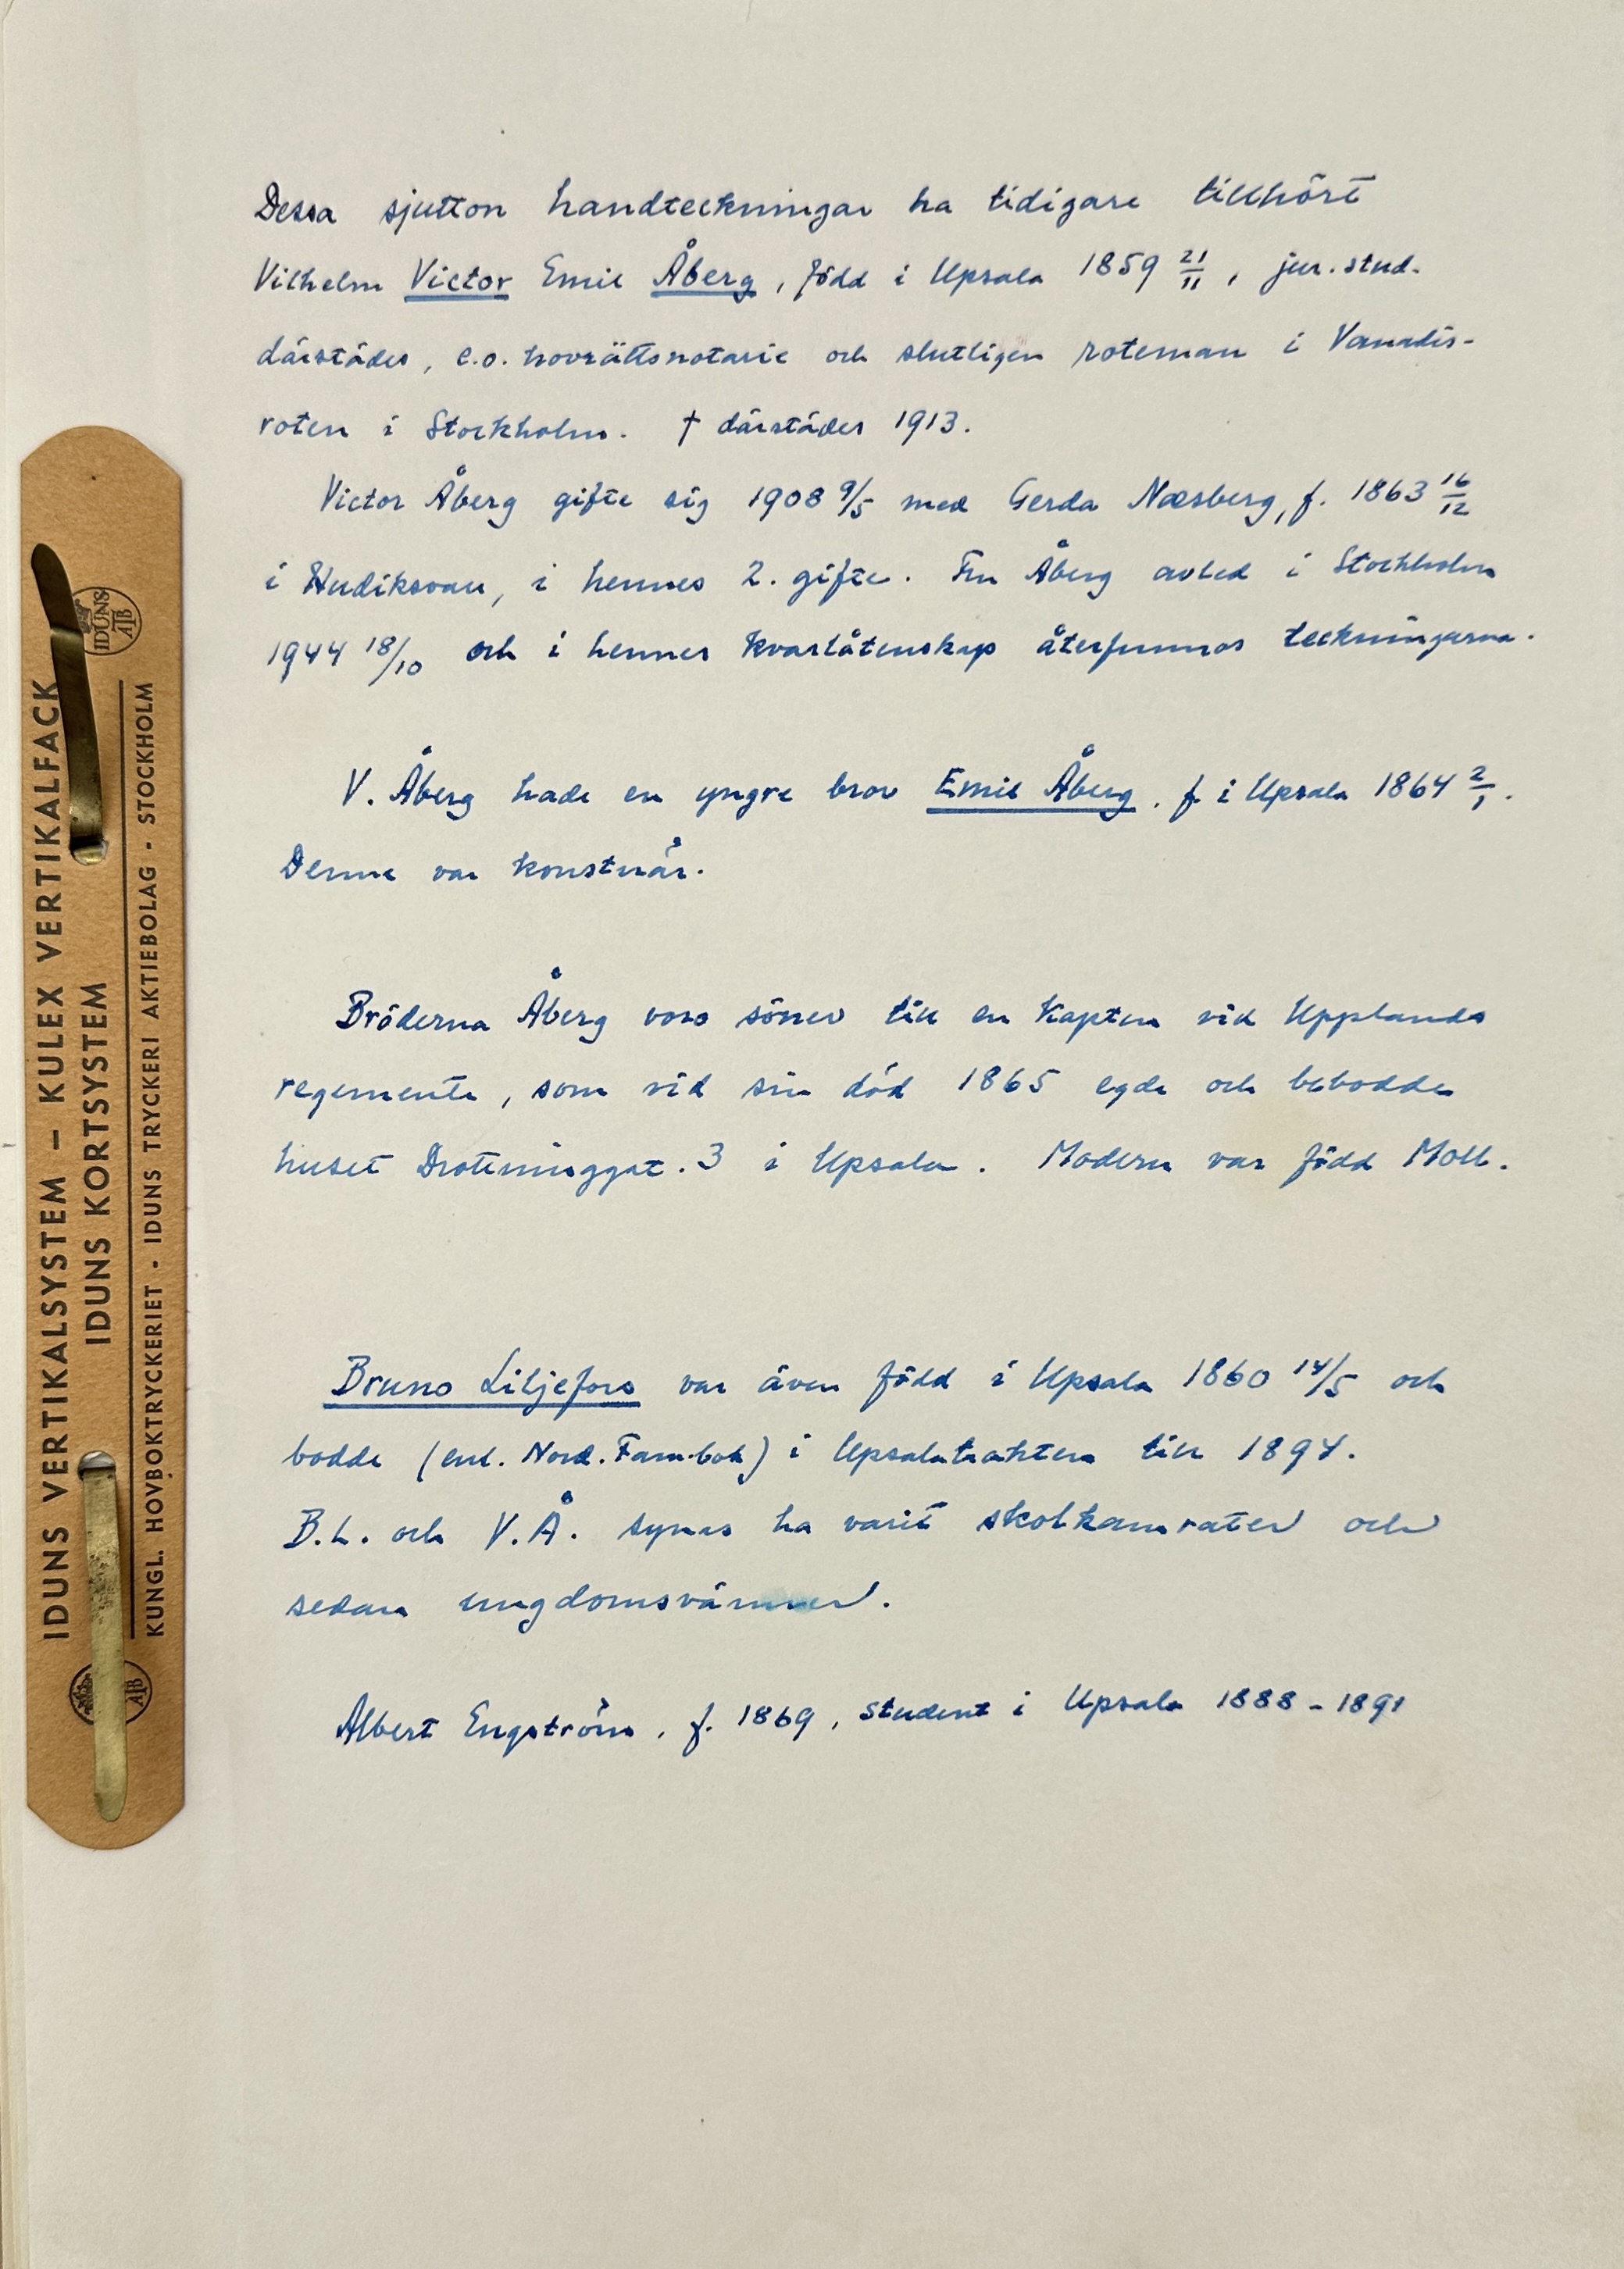 Dessa sjutton handteckningar ha tidigare tillhört
Vilhelm Victor Emil Åberg, född i Upsala 1859 21/11, jur. stud.
därstädes, e.o. hovrättsnotarie och slutligen roteman i Vanadis-
roten i Stockholm. † därstädes 1913.
Victor Åberg gifte sig 1908 9/5 med Gerda Næsberg, f. 1863 16/12
i Hudiksvall, i hennes 2. gifte. Fru Åberg avled i Stockholm
1944 18/10 och i hennes kvarlåtenskap återfunnos teckningarna.
V. Åberg hade en yngre bror Emil Åberg, f. i Upsala 1864 2/1.
Denne var konstnär.
Bröderna Åberg voro söner till en kapten vid Upplands
regemente, som vid sin död 1865 egde och bebodde
huset Drottninggat. 3 i Upsala. Modern var född Moll.
Bruno Liljefors var även född i Upsala 1860 14/5 och
bodde (enl. Nord. Fam.bok) i Upsalatrakten till 1894.
B.L. och V.Å. synas ha varit skolkamrater och
sedan ungdomsvänner.
Albert Engström, f. 1869, student i Upsala 1888-1891
IDUNS VERTIKALSYSTEM – KULEX VERTIKALFACK
IDUNS KORTSYSTEM
KUNGL. HOVBOKTRYCKERIET · IDUNS TRYCKERI AKTIEBOLAG · STOCKHOLM
IDUNS
ATB
ATB